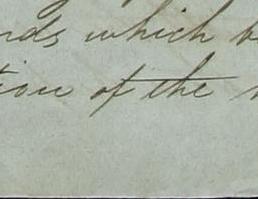 nds which b
tion of the